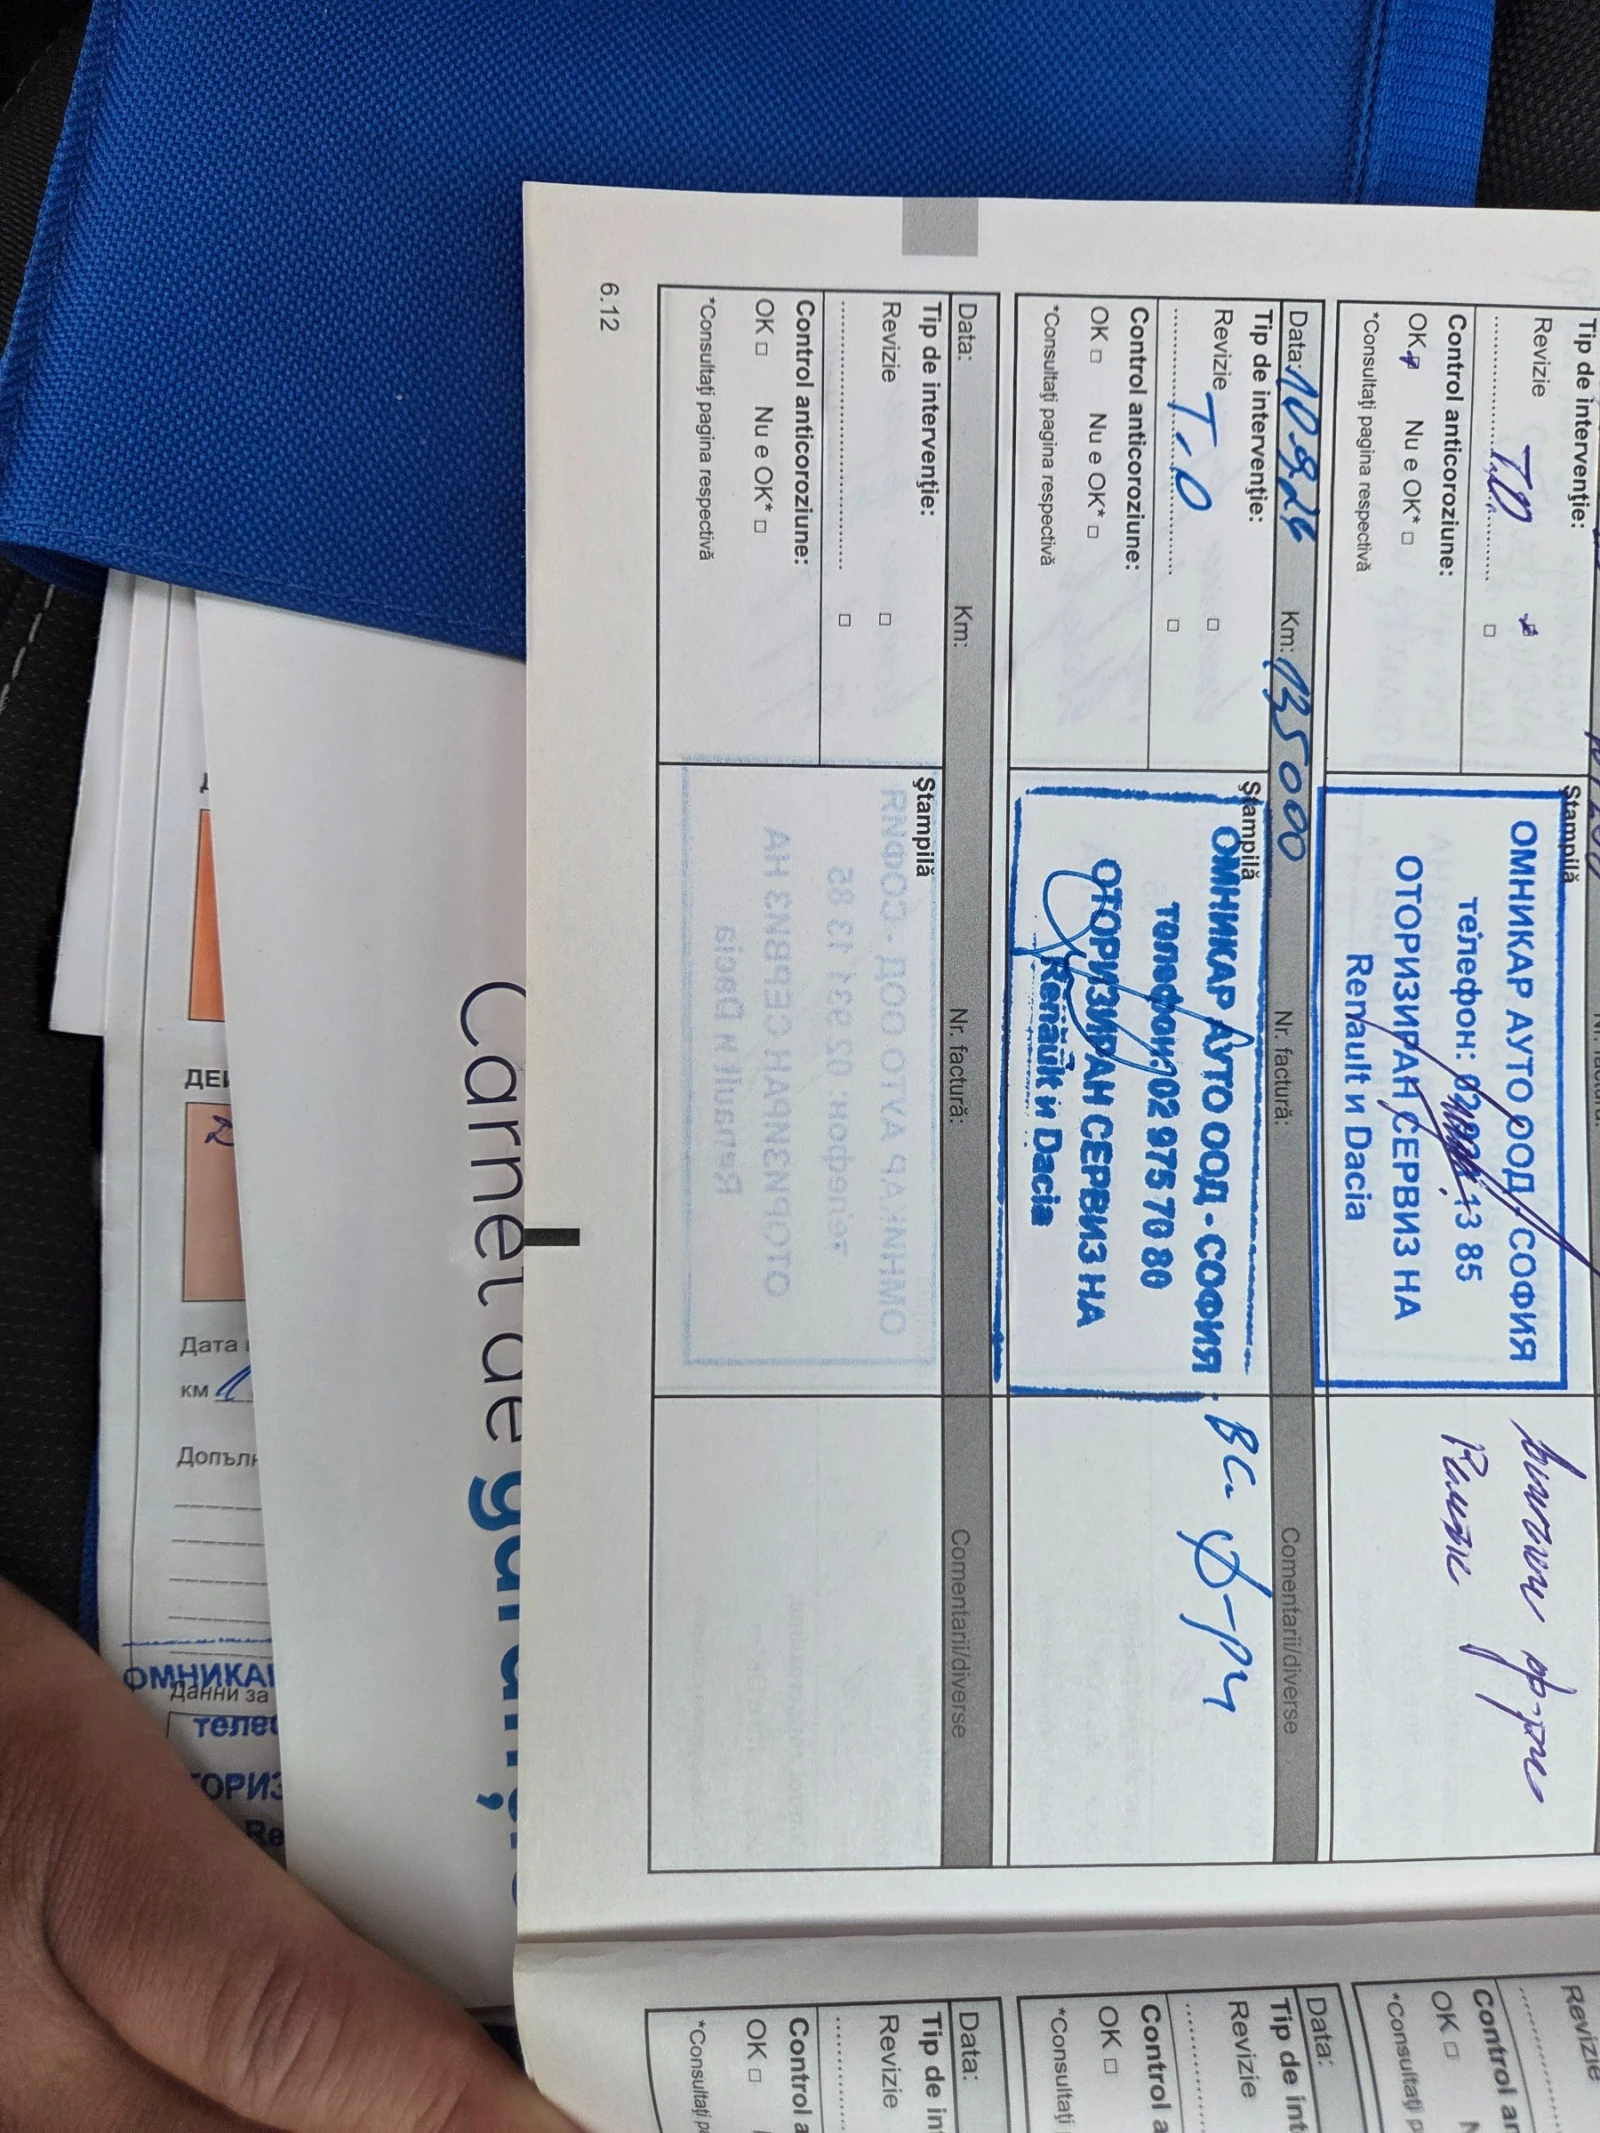 Tip de intervenţie:
Revizie
T.O
Control anticoroziune:
OK Nu e OK*
*Consultaţi pagina respectivă
Ştampilă
ОМНИКАР АУТО ООД, СОФИЯ
телефон: 02 13 85
ОТОРИЗИРАН СЕРВИЗ НА
Renault и Dacia
Data: Km: 135000 Nr. factură: Comentarii/diverse
Tip de intervenţie:
Revizie
T.O
Control anticoroziune:
OK Nu e OK*
*Consultaţi pagina respectivă
Ştampilă
ОМНИКАР АУТО ООД - СОФИЯ
телефон: 02 975 70 80
ОТОРИЗИРАН СЕРВИЗ НА
Renault и Dacia
Вс. ф-ри
Data: Km: Nr. factură: Comentarii/diverse
Tip de intervenţie:
Revizie
Control anticoroziune:
OK Nu e OK*
*Consultaţi pagina respectivă
Ştampilă
6.12
Revizie
Control an
OK
*Consultaţi p
Data:
Tip de int
Revizie
Control a
OK
*Consultaţi
Data:
Tip de int
Revizie
Control a
OK
*Consultaţi pa
Carnet de garanţie
ДЕ
Дата
км
Допълн
ОМНИКА
Данни за
телеф
ОРИЗ
Re